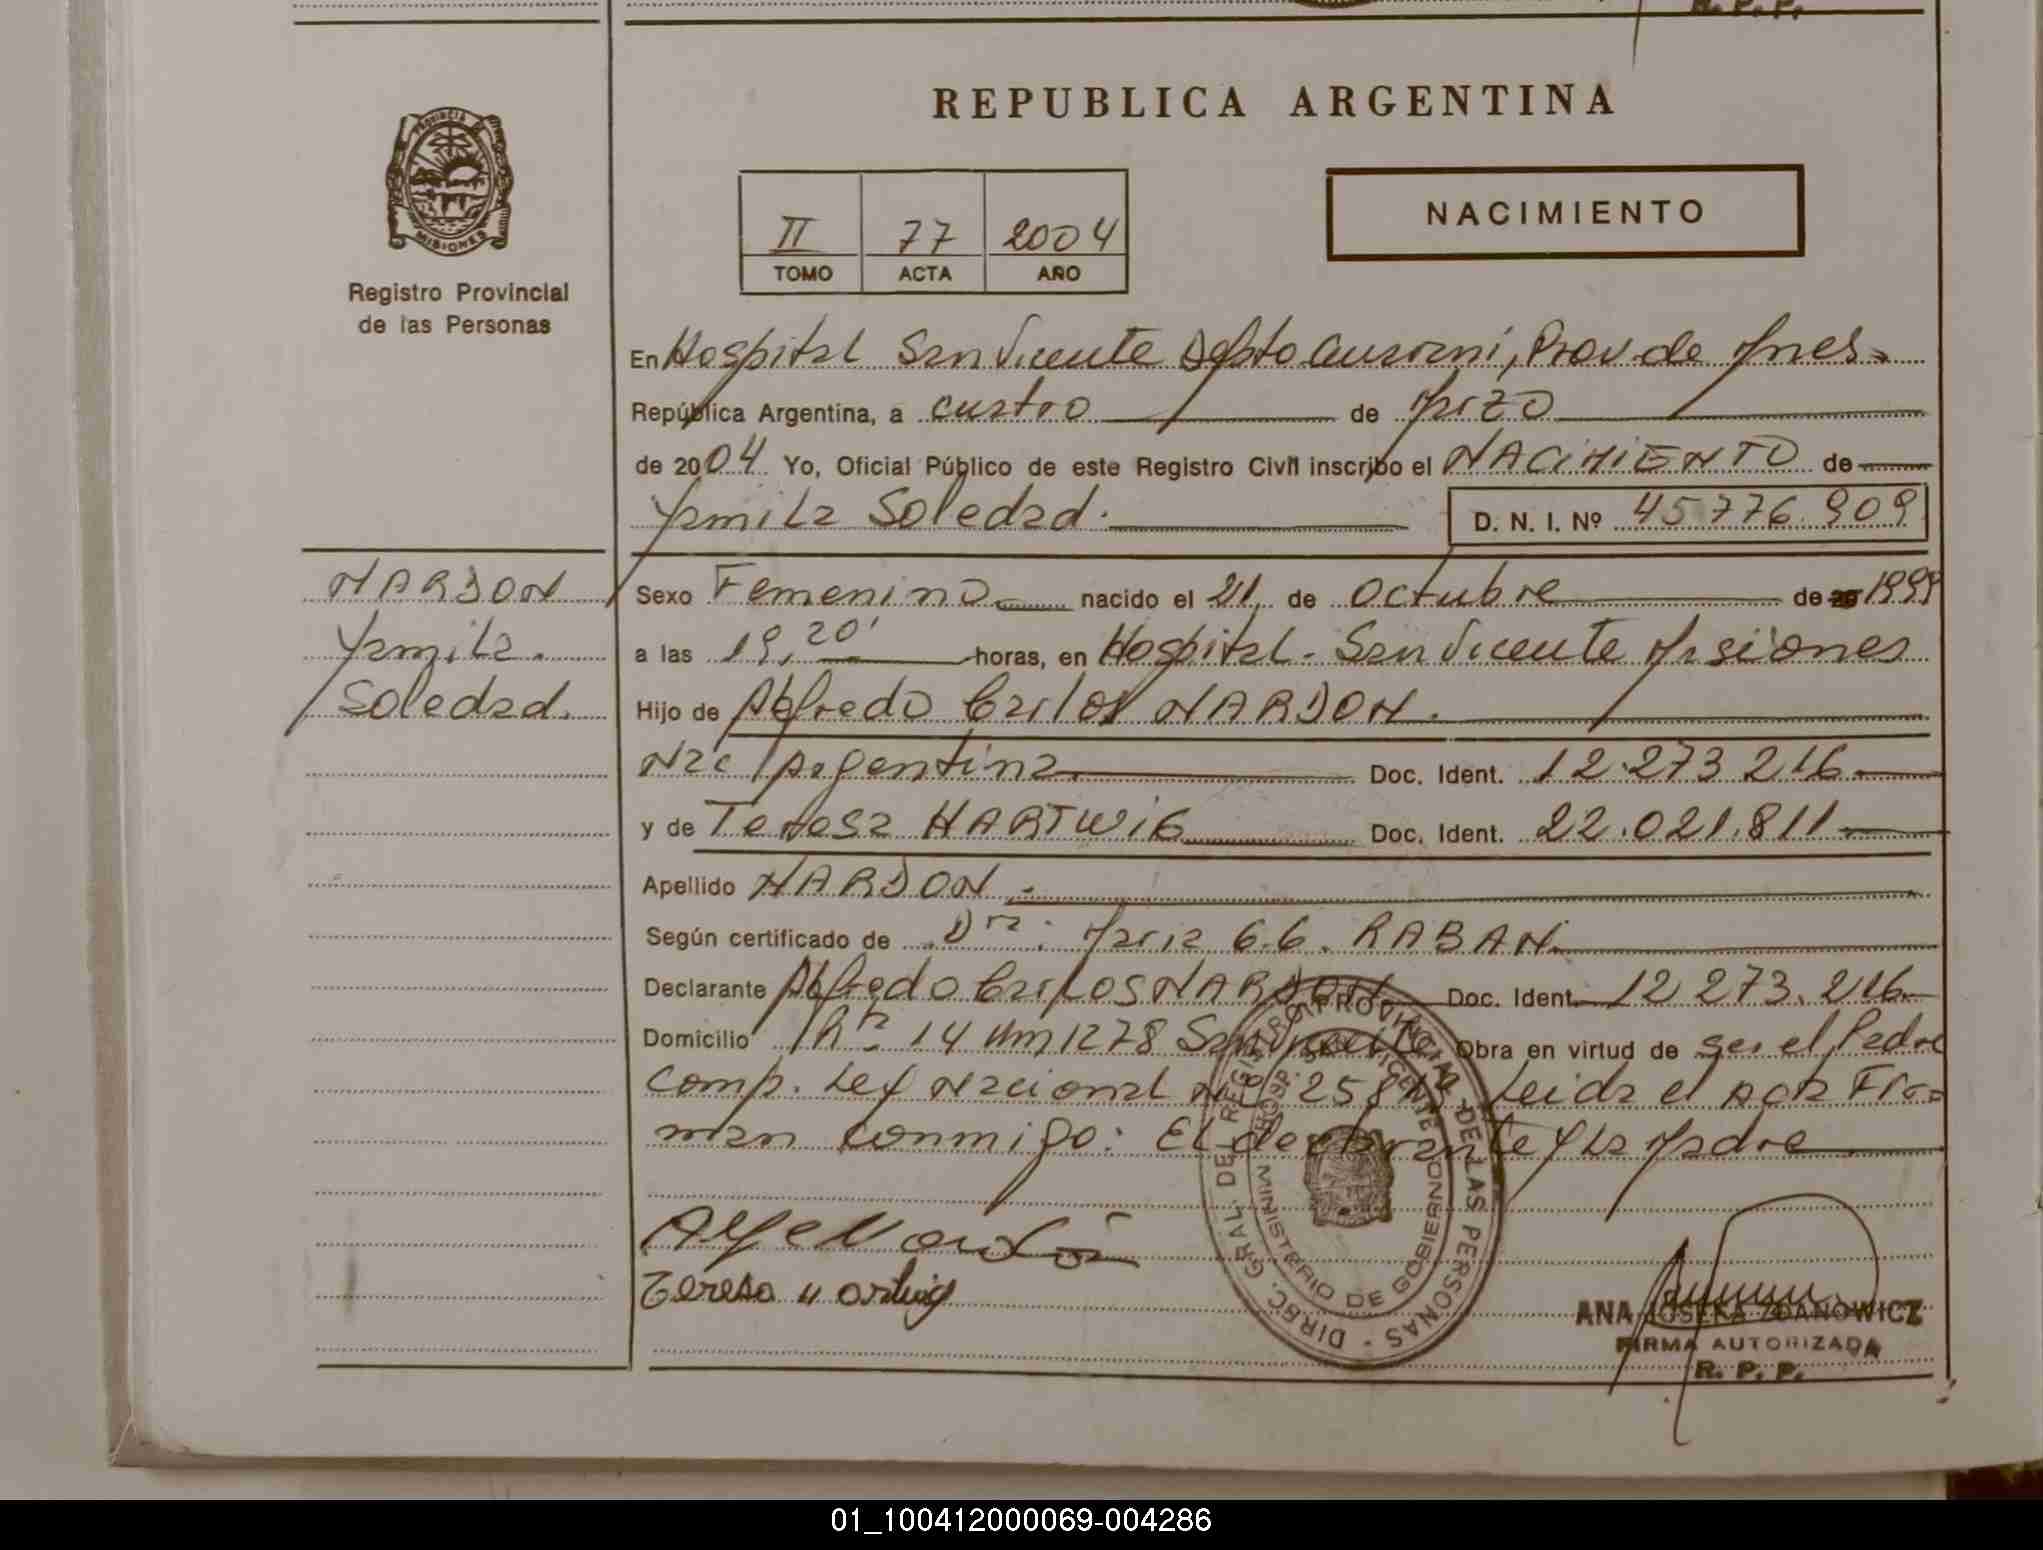 R. P. P.
REPUBLICA ARGENTINA
PROVINCIA DE
MISIONES
Registro Provincial
de las Personas
II 77 2004
TOMO ACTA AÑO
NACIMIENTO
En Hospital San Vicente Depto Guarani, Prov. de Mnes.
República Argentina, a cuatro de Marzo
de 2004 Yo, Oficial Público de este Registro Civil inscribo el NACIMIENTO de
Yamila Soledad. D. N. I. Nº 45776.909
NARDON
Yamila
Soledad.
Sexo Femenino nacido el 21 de Octubre de 20 1999
a las 19,20' horas, en Hospital - San Vicente Misiones
Hijo de Alfredo Carlos NARDON.
Nac Argentina Doc. Ident. 12.273 216
y de Teresa HARTWIG Doc. Ident. 22.021.811
Apellido NARDON
Según certificado de Dra. Maria G.G. RABAN.
Declarante Alfredo Carlos NARDON Doc. Ident. 12 273.216
Domicilio Rta 14 Km 1278 San Vicente Obra en virtud de ser el Padre
Comp. Ley Nacional Nº Leida el Acta Fir=
man conmigo: El declarante y la Madre
Teresa Hartwig
DIREC. GRAL. DEL REGISTRO PROVINCIAL DE LAS PERSONAS
HOSP. SAN VICENTE
MINISTERIO DE GOBIERNO
ANA JOSEFA ZDANOWICZ
FIRMA AUTORIZADA
R. P. P.
01_100412000069-004286